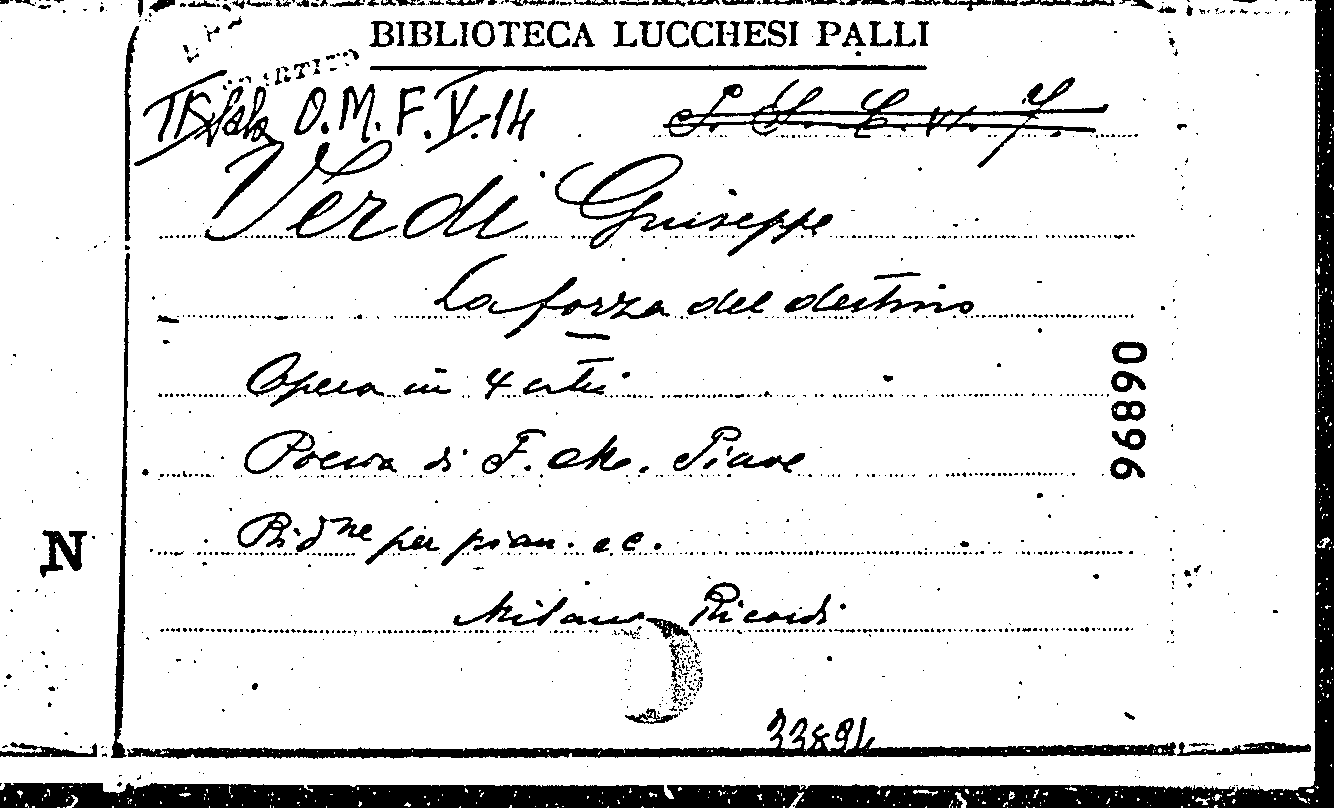 BIBLIOTECA LUCCHESI PALLI
O.M.F.V.14
Verdi Giuseppe
La forza del destino
Opera in 4 atti
Poesia di F. M. Piave
Rid.ne per pian. e c.
Milano Ricordi
96890
N